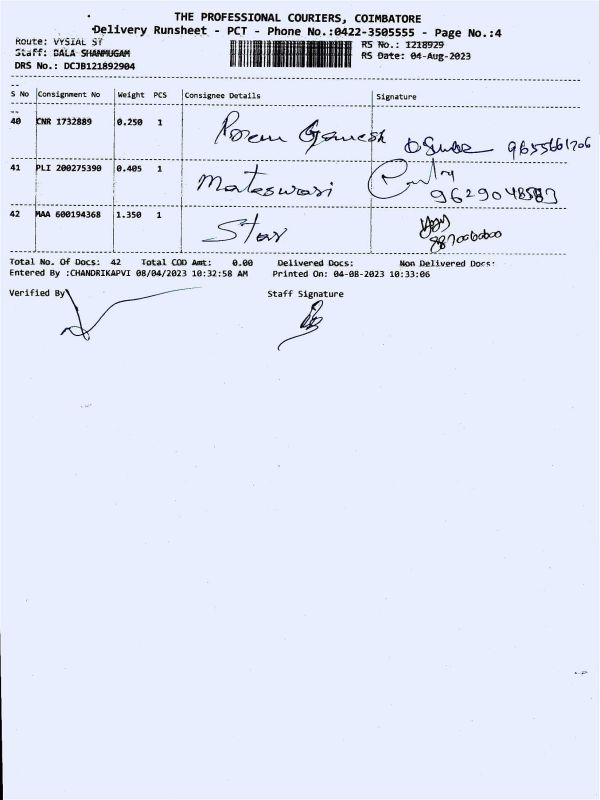 THE PROFESSIONAL COURIERS, COIMBATORE
Delivery Runsheet - PCT - Phone No.:0422-3505555 - Page No.:4
Route: VYSIAL ST
RS No.: 1218929
Staff: BALA SHANMUGAM
RS Date: 04-Aug-2023
DRS No.: DCJB121892904
S No Consignment No Weight PCS Consignee Details Signature
40 CNR 1732889 0.250 1 Ganesh 9655661206
41 PLI 200275390 0.405 1 Mateswari
42 MAA 600194368 1.350 1 Star
Total No. Of Docs: 42 Total COD Amt: 0.00 Delivered Docs: Non Delivered Docs:
Entered By :CHANDRIKAPVI 08/04/2023 10:32:58 AM Printed On: 04-08-2023 10:33:06
Verified By Staff Signature